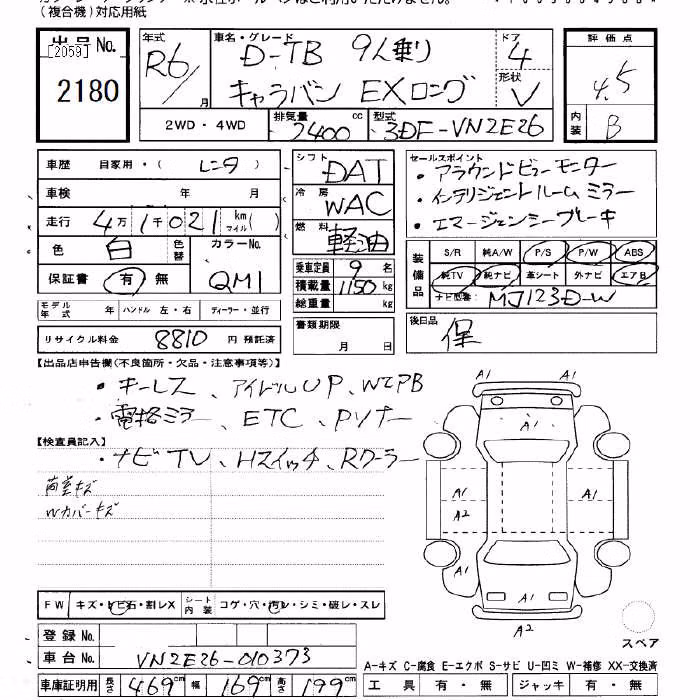 (複合機)対応用紙
出品No.
[2059]
2180
年式
R6
月
車名・グレード
D-TB 9人乗り
キャラバン EXロング
ドア
4
形状
V
評価点
4.5
内装
B
2WD・4WD
排気量
2400 cc
型式
3DF-VN2E26
車歴 自家用・( レンタ )
車検 年 月
走行 4万1千021 km マイル ( )
色 白 色替 カラーNo.
保証書 有・無 QM1
モデル年式 年 ハンドル 左・右 ディーラー・並行
リサイクル料金 8810 円 預託済
シフト DAT
冷房 WAC
燃料 軽油
乗車定員 9 名
積載量 1150 kg
総重量 kg
書類期限
月 日
セールスポイント
・アラウンドビューモニター
・インテリジェントルームミラー
・エマージェンシーブレーキ
装備品
S/R 純A/W P/S P/W ABS
純TV 純ナビ 革シート 外ナビ エアB
ナビ型番: MJ123D-W
後日品
保
【出品店申告欄(不良箇所・欠品・注意事項等)】
・キーレス、アイドルUP、WエアB
・電格ミラー、ETC、Pソナー
【検査員記入】
・ナビTV、Hスイッチ、Rクーラー
荷室キズ
Wカバーキズ
A1
A1
A1
A1
A2
A1
A1
A2
スペア
FW キズ・トビ石・割レX シート内装 コゲ・穴・汚レ・シミ・破レ・スレ
登録No.
車台No. VN2E26-010373
車庫証明用 長さ 469cm 幅 169cm 高さ 199cm
A-キズ C-腐食 E-エクボ S-サビ U-凹ミ W-補修 XX-交換済
工具 有・無 ジャッキ 有・無